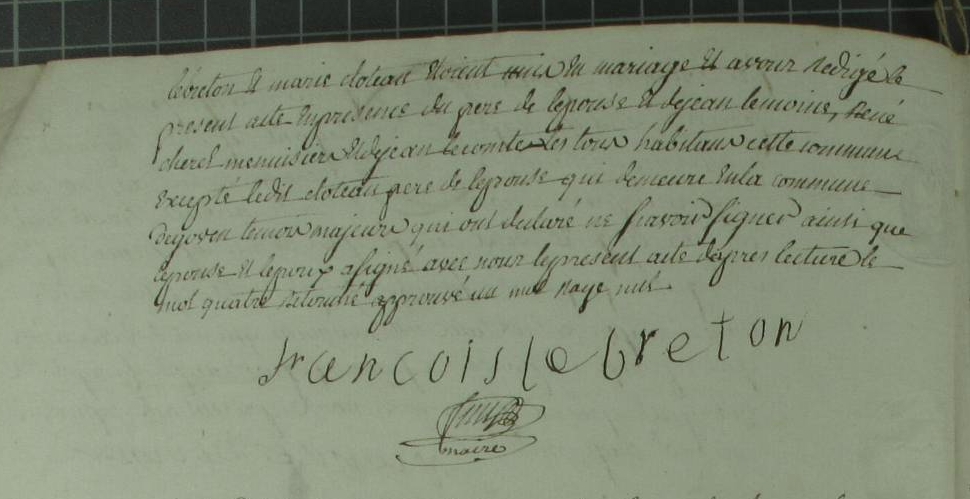 lebreton et marie cloteau étoient unis en mariage et avons redigé le
present acte en presence du pere de lepouse et de jean lemoine, René
cherel menuisier et de jean lecomte les tous habitans cette commune
excepte ledit cloteau pere de lepouse qui demeure en la commune
temoins majeurs qui ont declaré ne savoir signer ainsi que
lepouse et lepoux a signé avec nous le present acte dapres lecture le
mot quatre approuvé un mot rayé nul
francois lebreton
maire